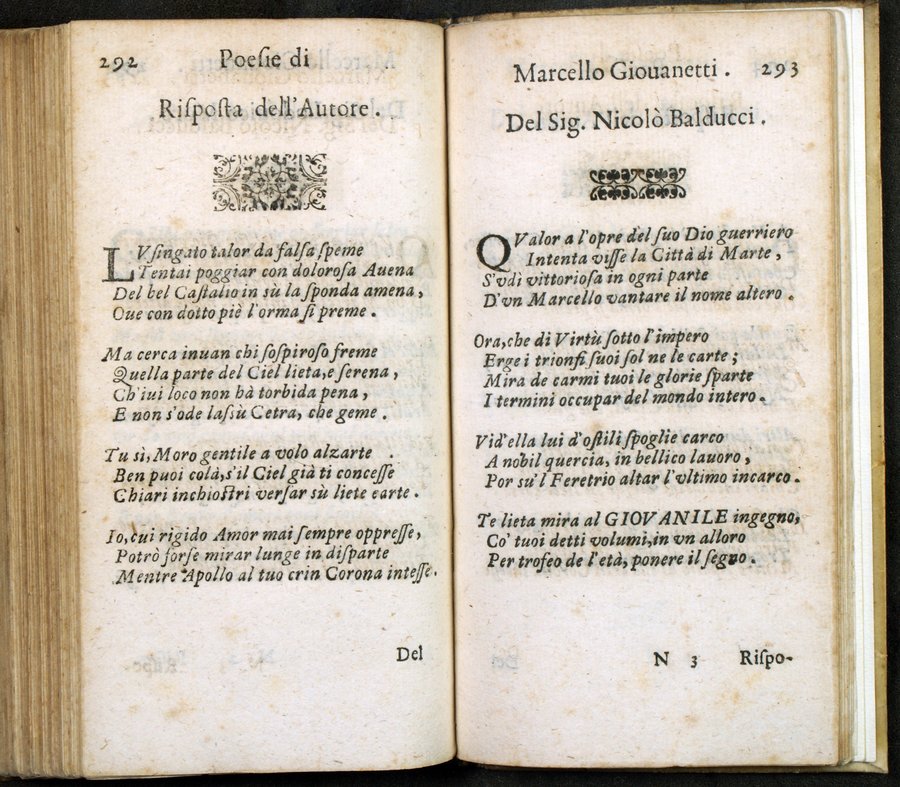 292 Poeſie di
Riſpoſta dell'Autore.
LVſingato talor da falſa ſpeme
Tentai poggiar con doloroſa Auena
Del bel Caſtalio in sù la ſponda amena,
Oue con dotto piè l'orma ſi preme.
Ma cerca inuan chi ſoſpiroſo freme
Quella parte del Ciel lieta, e ſerena,
Ch'iui loco non hà torbida pena,
E non s'ode laſsù Cetra, che geme.
Tu sì, Moro gentile a volo alzarte
Ben puoi colà, s'il Ciel già ti conceſſe
Chiari inchioſtri verſar sù liete carte.
Io, cui rigido Amor mai ſempre oppreſſe,
Potrò forſe mirar lunge in diſparte
Mentre Apollo al tuo crin Corona inteſſe.
Del
Marcello Giouanetti. 293
Del Sig. Nicolò Balducci.
QValor a l'opre del ſuo Dio guerriero
Intenta viſſe la Città di Marte,
S'vdì vittorioſa in ogni parte
D'vn Marcello vantare il nome altero.
Ora, che di Virtù ſotto l'impero
Erge i trionfi ſuoi ſol ne le carte;
Mira de carmi tuoi le glorie ſparte
I termini occupar del mondo intero.
Vid'ella lui d'oſtili ſpoglie carco
A nobil quercia, in bellico lauoro,
Por su'l Feretrio altar l'vltimo incarco.
Te lieta mira al GIOVANILE ingegno,
Co' tuoi detti volumi, in vn alloro
Per trofeo de l'età, ponere il ſegno.
N 3 Riſpo-